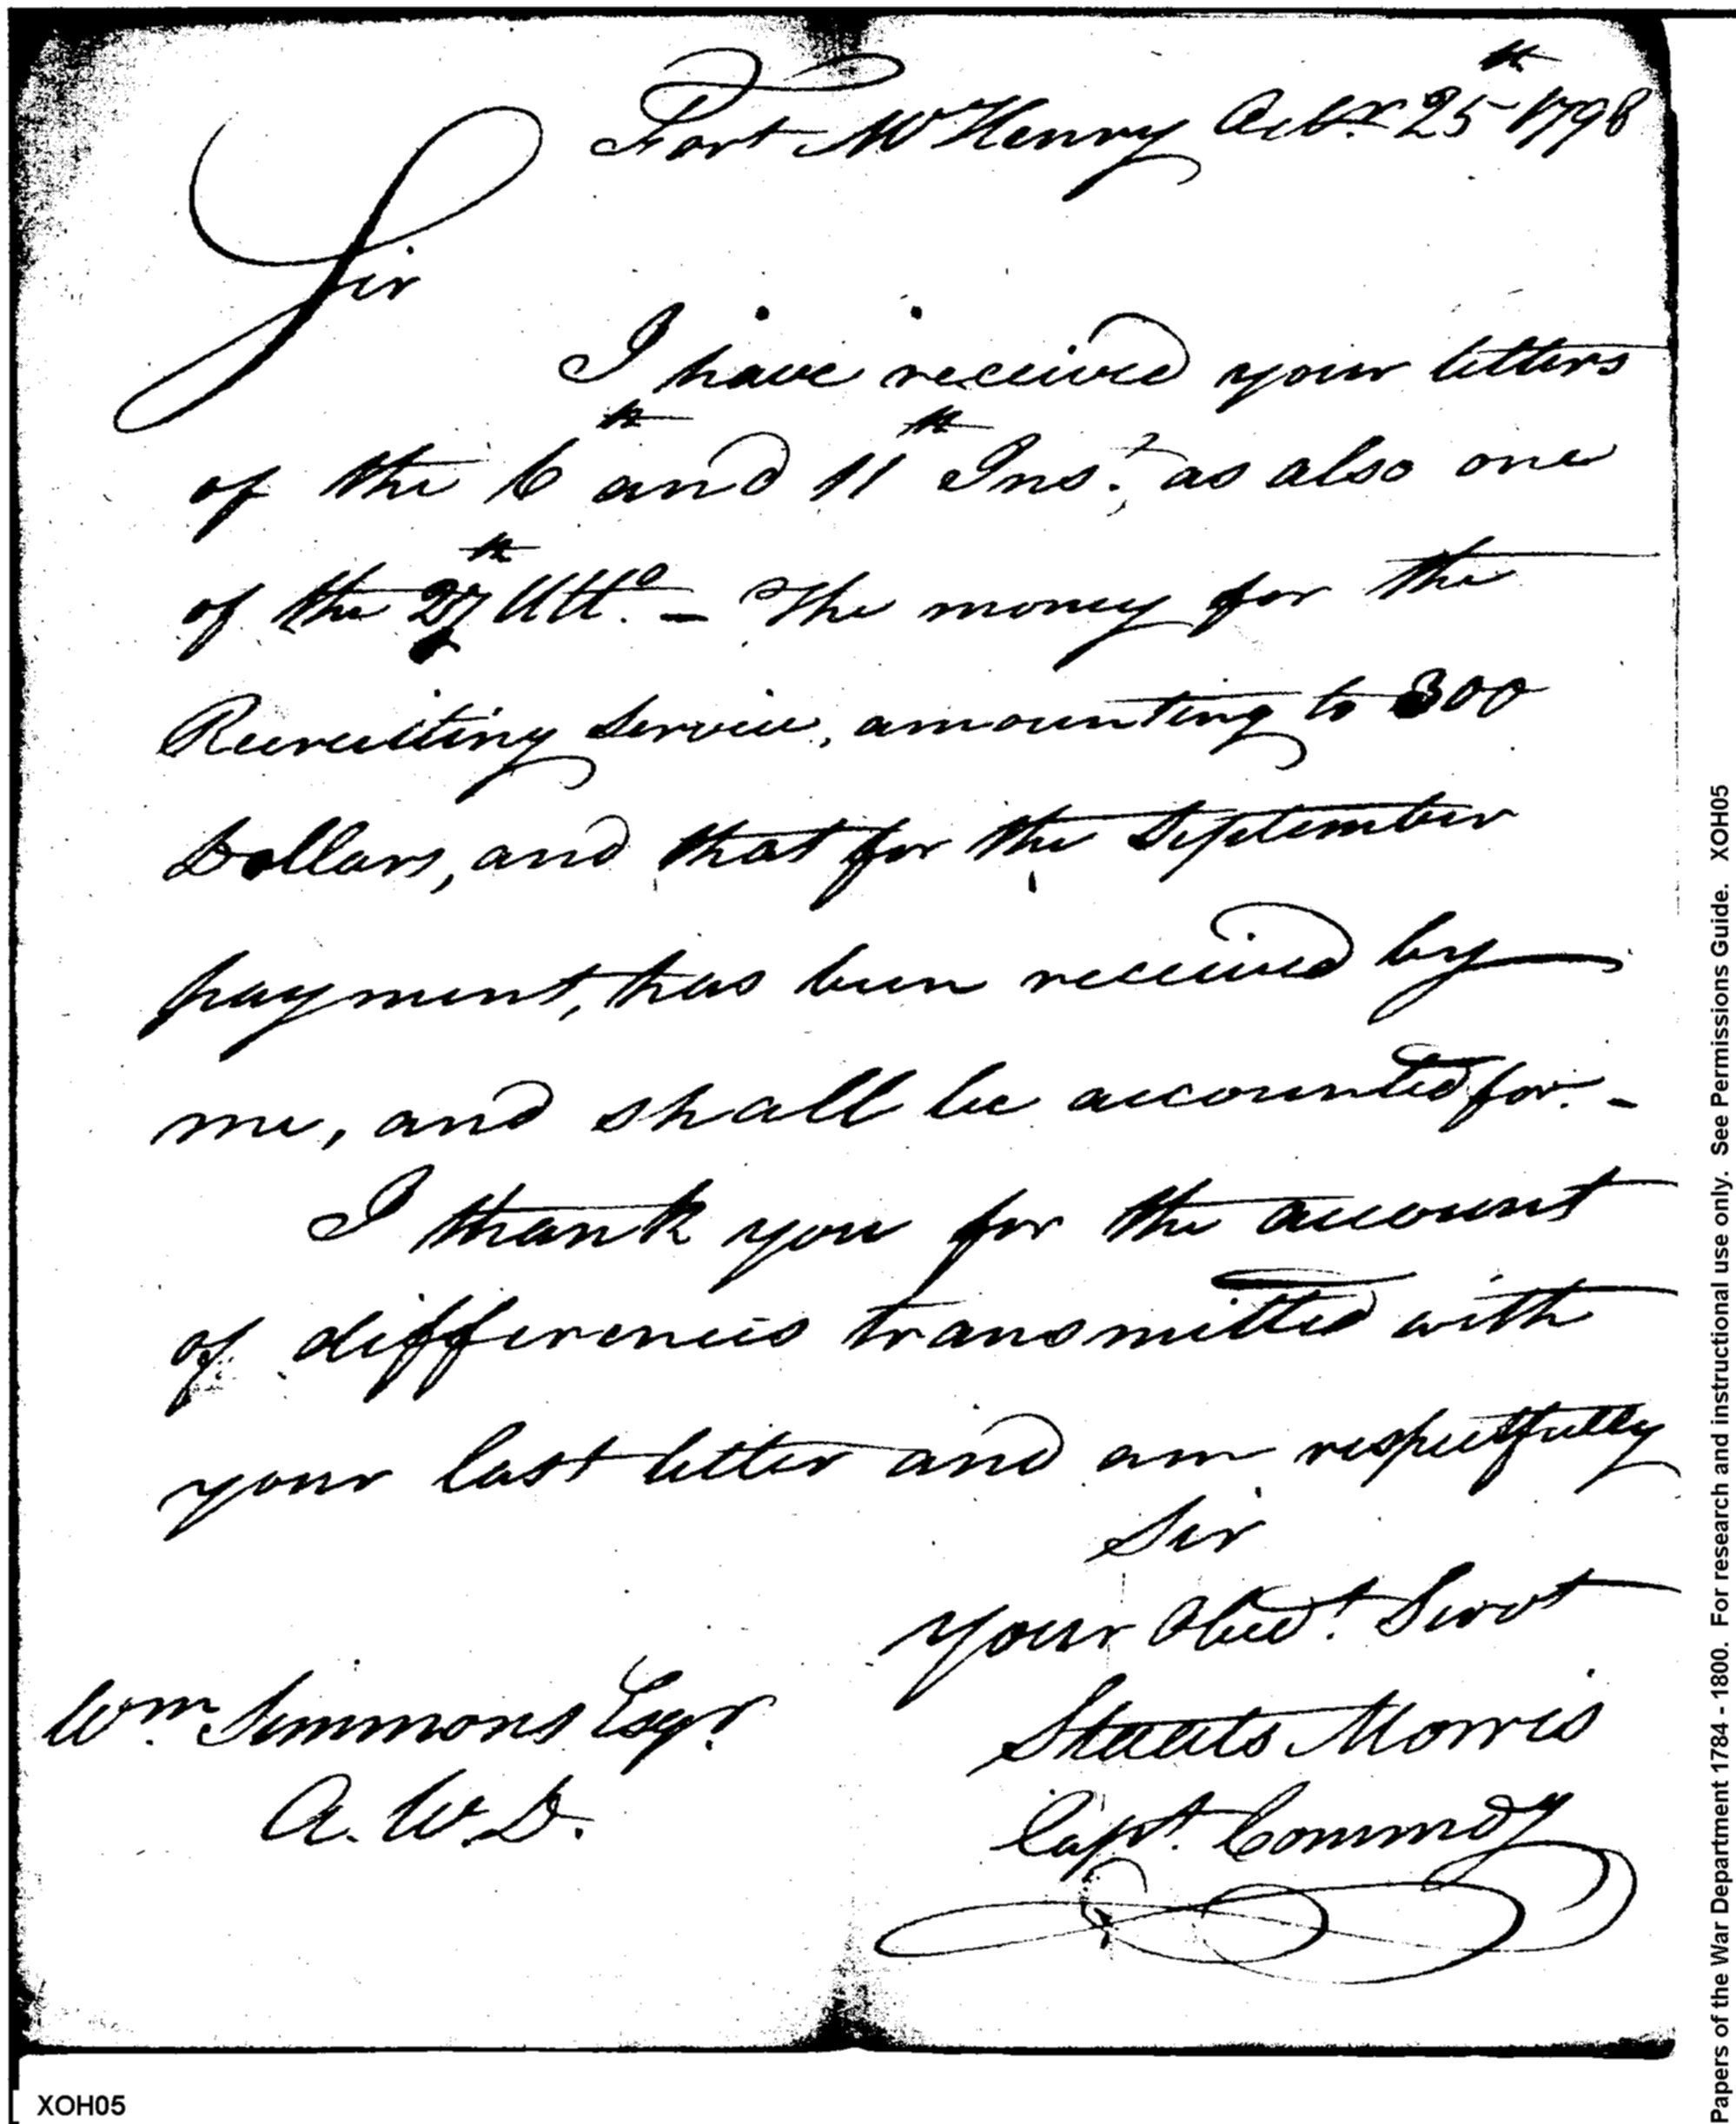 Fort McHenry Octbr. 25th 1798
Sir
I have received your letters
of the 6th and 11th Inst., as also one
of the 27th Ulto. - The money for the
Recruiting Service, amounting to 300
Dollars, and that for the September
payment, has been received by
me, and shall be accounted for. -
I thank you for the account
of differences transmitted with
your last letter and am respectfully
Sir
your Obedt. Servt
Staats Morris
Capt. Commdg
Wm. Simmons Esqr.
A. W. D.
XOH05
Papers of the War Department 1784 - 1800. For research and instructional use only. See Permissions Guide. XOH05